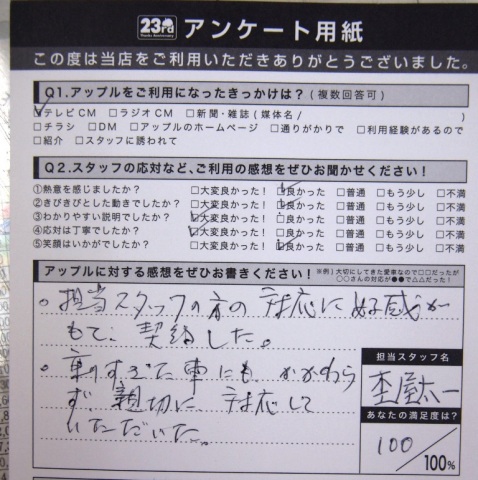 23rd アンケート用紙
この度は当店をご利用いただきありがとうございました。
Q1.アップルをご利用になったきっかけは？(複数回答可)
□テレビCM □ラジオCM □新聞・雑誌(媒体名/ )
□チラシ □DM □アップルのホームページ □通りがかりで □利用経験があるので
□紹介 □スタッフに誘われて
Q2.スタッフの応対など、ご利用の感想をぜひお聞かせください！
①熱意を感じましたか？ □大変良かった！ □良かった □普通 □もう少し □不満
②きびきびとした動きでしたか？ □大変良かった！ □良かった □普通 □もう少し □不満
③わかりやすい説明でしたか？ □大変良かった！ □良かった □普通 □もう少し □不満
④応対は丁寧でしたか？ □大変良かった！ □良かった □普通 □もう少し □不満
⑤笑顔はいかがでしたか？ □大変良かった！ □良かった □普通 □もう少し □不満
アップルに対する感想をぜひお書きください！
※例）大切にしてきた愛車なので□□だったが
○○さんの対応が●●で△△だった！
○担当スタッフの方の対応に好感が
もて、契約した。
○乗りすぎた車にも、かかわら
ず、親切に対応して
いただいた。
担当スタッフ名
太一
あなたの満足度は？
100/100%